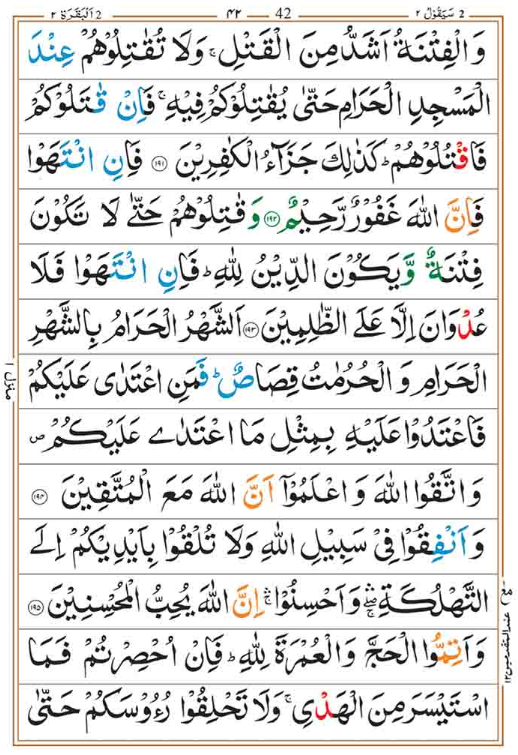 2 سَيَقُوْلُ ٢ 42 ٤٢ 2 اَلْبَقَرَة ٢
وَ الْفِتْنَةُ اَشَدُّ مِنَ الْقَتْلِ ۚ وَلَا تُقٰتِلُوْهُمْ عِنْدَ
الْمَسْجِدِ الْحَرَامِ حَتّٰى يُقٰتِلُوْكُمْ فِيْهِ ۚ فَاِنْ قٰتَلُوْكُمْ
فَاقْتُلُوْهُمْ ؕ كَذٰلِكَ جَزَآءُ الْكٰفِرِيْنَ ﴿۱۹۱﴾ فَاِنِ انْتَهَوْا
فَاِنَّ اللّٰهَ غَفُوْرٌ رَّحِيْمٌ ﴿۱۹۲﴾ وَ قٰتِلُوْهُمْ حَتّٰى لَا تَكُوْنَ
فِتْنَةٌ وَّيَكُوْنَ الدِّيْنُ لِلّٰهِ ؕ فَاِنِ انْتَهَوْا فَلَا
عُدْوَانَ اِلَّا عَلَى الظّٰلِمِيْنَ ﴿۱۹۳﴾ اَلشَّهْرُ الْحَرَامُ بِالشَّهْرِ
الْحَرَامِ وَ الْحُرُمٰتُ قِصَاصٌ ؕ فَمَنِ اعْتَدٰى عَلَيْكُمْ
فَاعْتَدُوْا عَلَيْهِ بِمِثْلِ مَا اعْتَدٰى عَلَيْكُمْ ۪
وَ اتَّقُوا اللّٰهَ وَ اعْلَمُوْۤا اَنَّ اللّٰهَ مَعَ الْمُتَّقِيْنَ ﴿۱۹۴﴾
وَ اَنْفِقُوْا فِيْ سَبِيْلِ اللّٰهِ وَلَا تُلْقُوْا بِاَيْدِيْكُمْ اِلَى
التَّهْلُكَةِ ۖۛۚ وَ اَحْسِنُوْا ۚۛ اِنَّ اللّٰهَ يُحِبُّ الْمُحْسِنِيْنَ ﴿۱۹۵﴾
وَ اَتِمُّوا الْحَجَّ وَ الْعُمْرَةَ لِلّٰهِ ؕ فَاِنْ اُحْصِرْتُمْ فَمَا
اسْتَيْسَرَ مِنَ الْهَدْيِ ۚ وَلَا تَحْلِقُوْا رُءُوْسَكُمْ حَتّٰى
منزل ١